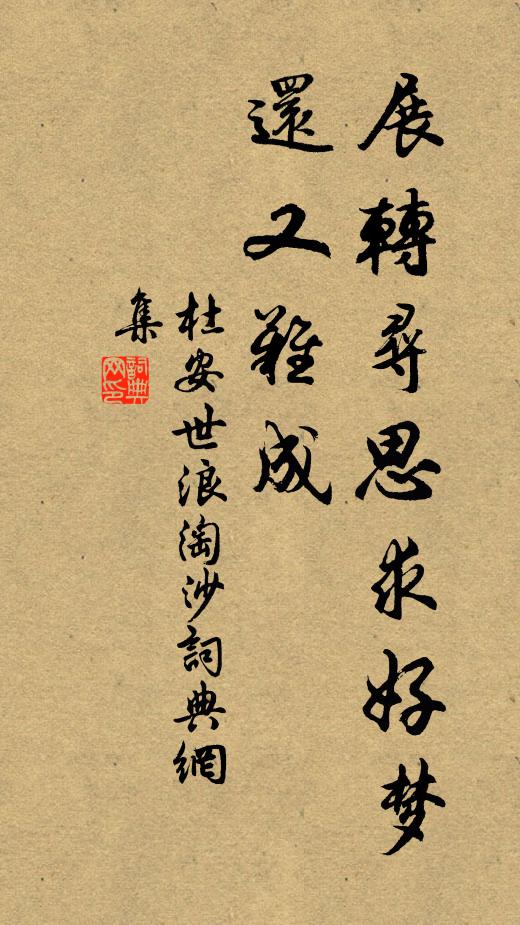 展轉尋思求好梦
還又難成
杜安世浪淘沙詞典網
集
詞典
网印